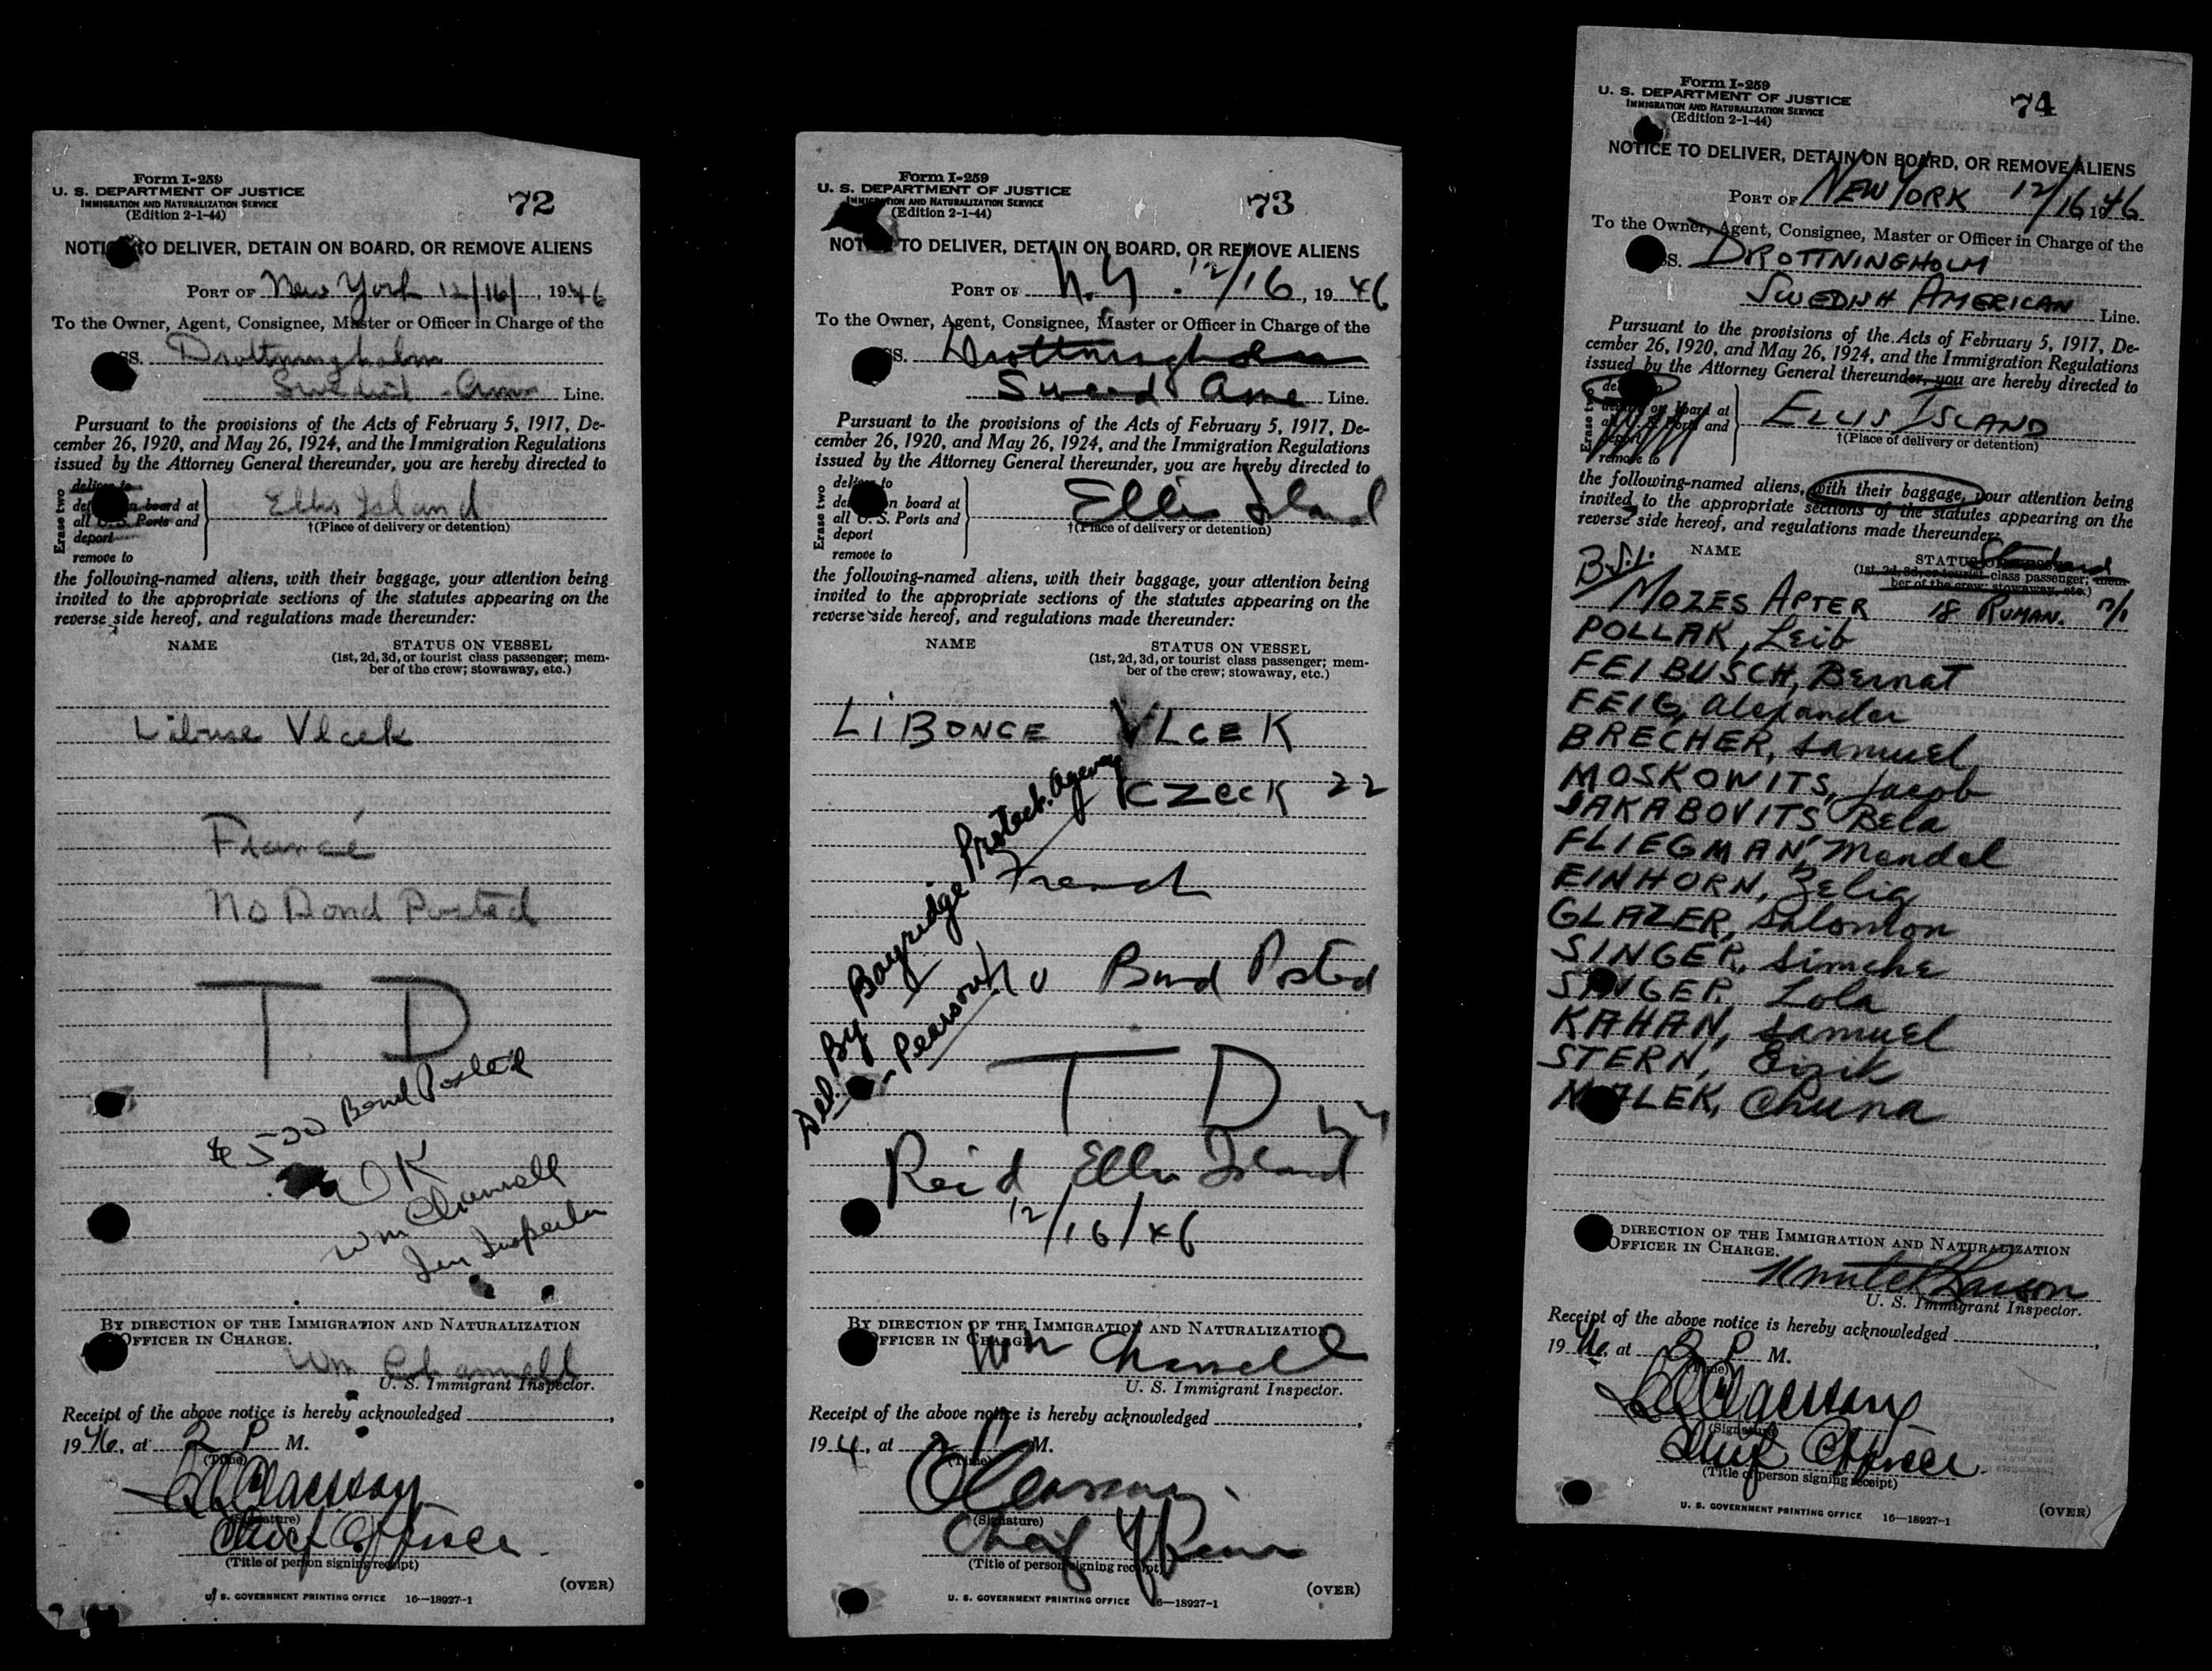 Form I-259
U. S. DEPARTMENT OF JUSTICE
IMMIGRATION AND NATURALIZATION SERVICE
(Edition 2-1-44)
72
NOTICE TO DELIVER, DETAIN ON BOARD, OR REMOVE ALIENS
PORT OF New York 12/16/, 1946
To the Owner, Agent, Consignee, Master or Officer in Charge of the
SS. Drottningholm
Swedish - Am Line.
Pursuant to the provisions of the Acts of February 5, 1917, De-
cember 26, 1920, and May 26, 1924, and the Immigration Regulations
issued by the Attorney General thereunder, you are hereby directed to
Erase two
deliver to
detain on board at
all U. S. Ports and
deport
remove to
Ellis Island
†(Place of delivery or detention)
the following-named aliens, with their baggage, your attention being
invited to the appropriate sections of the statutes appearing on the
reverse side hereof, and regulations made thereunder:
NAME STATUS ON VESSEL
(1st, 2d, 3d, or tourist class passenger; mem-
ber of the crew; stowaway, etc.)
Libuse Vlcek
Fiancé
No Bond Posted
T D
$500 Bond Posted
OK
Wm Channell
Im Inspector
BY DIRECTION OF THE IMMIGRATION AND NATURALIZATION
OFFICER IN CHARGE.
Wm Channell
U. S. Immigrant Inspector.
Receipt of the above notice is hereby acknowledged
1946, at 2 P M.
(Time)
(Signature)
Chief Officer
(Title of person signing receipt)
U. S. GOVERNMENT PRINTING OFFICE 16—18927-1
(OVER)
Form I-259
U. S. DEPARTMENT OF JUSTICE
IMMIGRATION AND NATURALIZATION SERVICE
(Edition 2-1-44)
73
NOTICE TO DELIVER, DETAIN ON BOARD, OR REMOVE ALIENS
PORT OF N.Y. 12/16, 1946
To the Owner, Agent, Consignee, Master or Officer in Charge of the
SS. Drottningholm
Swed Ame Line.
Pursuant to the provisions of the Acts of February 5, 1917, De-
cember 26, 1920, and May 26, 1924, and the Immigration Regulations
issued by the Attorney General thereunder, you are hereby directed to
Erase two
deliver to
detain on board at
all U. S. Ports and
deport
remove to
Ellis Island
†(Place of delivery or detention)
the following-named aliens, with their baggage, your attention being
invited to the appropriate sections of the statutes appearing on the
reverse side hereof, and regulations made thereunder:
NAME STATUS ON VESSEL
(1st, 2d, 3d, or tourist class passenger; mem-
ber of the crew; stowaway, etc.)
LIBONCE VLCEK
CZECK 22
French
No Bond Posted
Del. By Bayridge Protect. Agency
- Pearson
T D
Rec'd Ellis Island
12/16/46
BY DIRECTION OF THE IMMIGRATION AND NATURALIZATION
OFFICER IN CHARGE.
Wm Channell
U. S. Immigrant Inspector.
Receipt of the above notice is hereby acknowledged
194, at M.
(Time)
(Signature)
Chief Officer
(Title of person signing receipt)
U. S. GOVERNMENT PRINTING OFFICE 16—18927-1
(OVER)
Form I-259
U. S. DEPARTMENT OF JUSTICE
IMMIGRATION AND NATURALIZATION SERVICE
(Edition 2-1-44)
74
NOTICE TO DELIVER, DETAIN ON BOARD, OR REMOVE ALIENS
PORT OF NEW YORK 12/16 1946
To the Owner, Agent, Consignee, Master or Officer in Charge of the
SS. DROTTNINGHOLM
SWEDISH AMERICAN Line.
Pursuant to the provisions of the Acts of February 5, 1917, De-
cember 26, 1920, and May 26, 1924, and the Immigration Regulations
issued by the Attorney General thereunder, you are hereby directed to
Erase two
deliver to
detain on board at
all U. S. Ports and
deport
remove to
ELLIS ISLAND
†(Place of delivery or detention)
the following-named aliens, with their baggage, your attention being
invited to the appropriate sections of the statutes appearing on the
reverse side hereof, and regulations made thereunder:
B.S.I. NAME STATUS ON VESSEL
(1st, 2d, 3d, or tourist class passenger; mem-
ber of the crew; stowaway, etc.)
MOZES APTER 18 RUMAN.
POLLAK, Leib
FEIBUSCH, Bernat
FEIG, Alexander
BRECHER, Samuel
MOSKOWITS, Jacob
JAKABOVITS Bela
FLIEGMAN, Mendel
EINHORN, Zelig
GLAZER, Salomon
SINGER, Simche
SINGER Lola
KAHAN, Samuel
STERN, Eizik
Chuna
DIRECTION OF THE IMMIGRATION AND NATURALIZATION
OFFICER IN CHARGE.
Knute Larson
U. S. Immigrant Inspector.
Receipt of the above notice is hereby acknowledged
1946, at 2 P M.
(Time)
(Signature)
Chief Officer
(Title of person signing receipt)
U. S. GOVERNMENT PRINTING OFFICE 16—18927-1
(OVER)